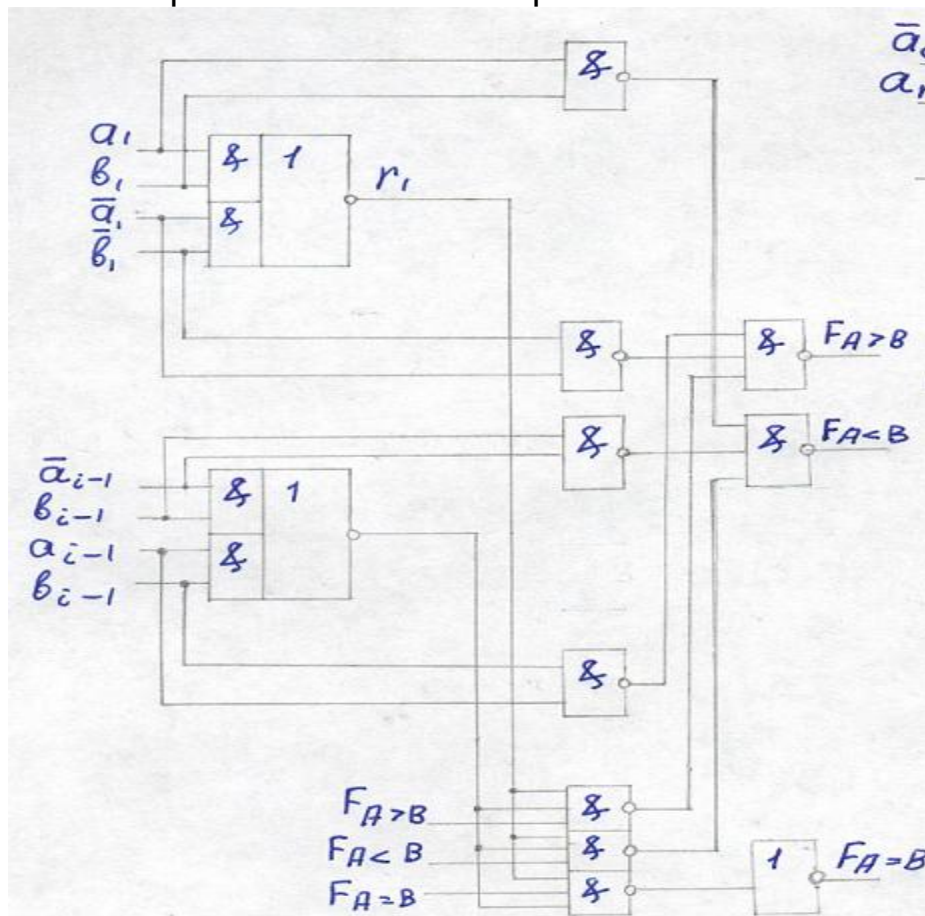 &
ā
a
a₁
b₁
ā₁
b̄₁
& 1
&
r₁
&
& F_A>B
&
& F_A<B
ā_i-1
b_i-1
a_i-1
b_i-1
& 1
&
&
F_A>B
F_A<B
F_A=B
&
&
&
1 F_A=B